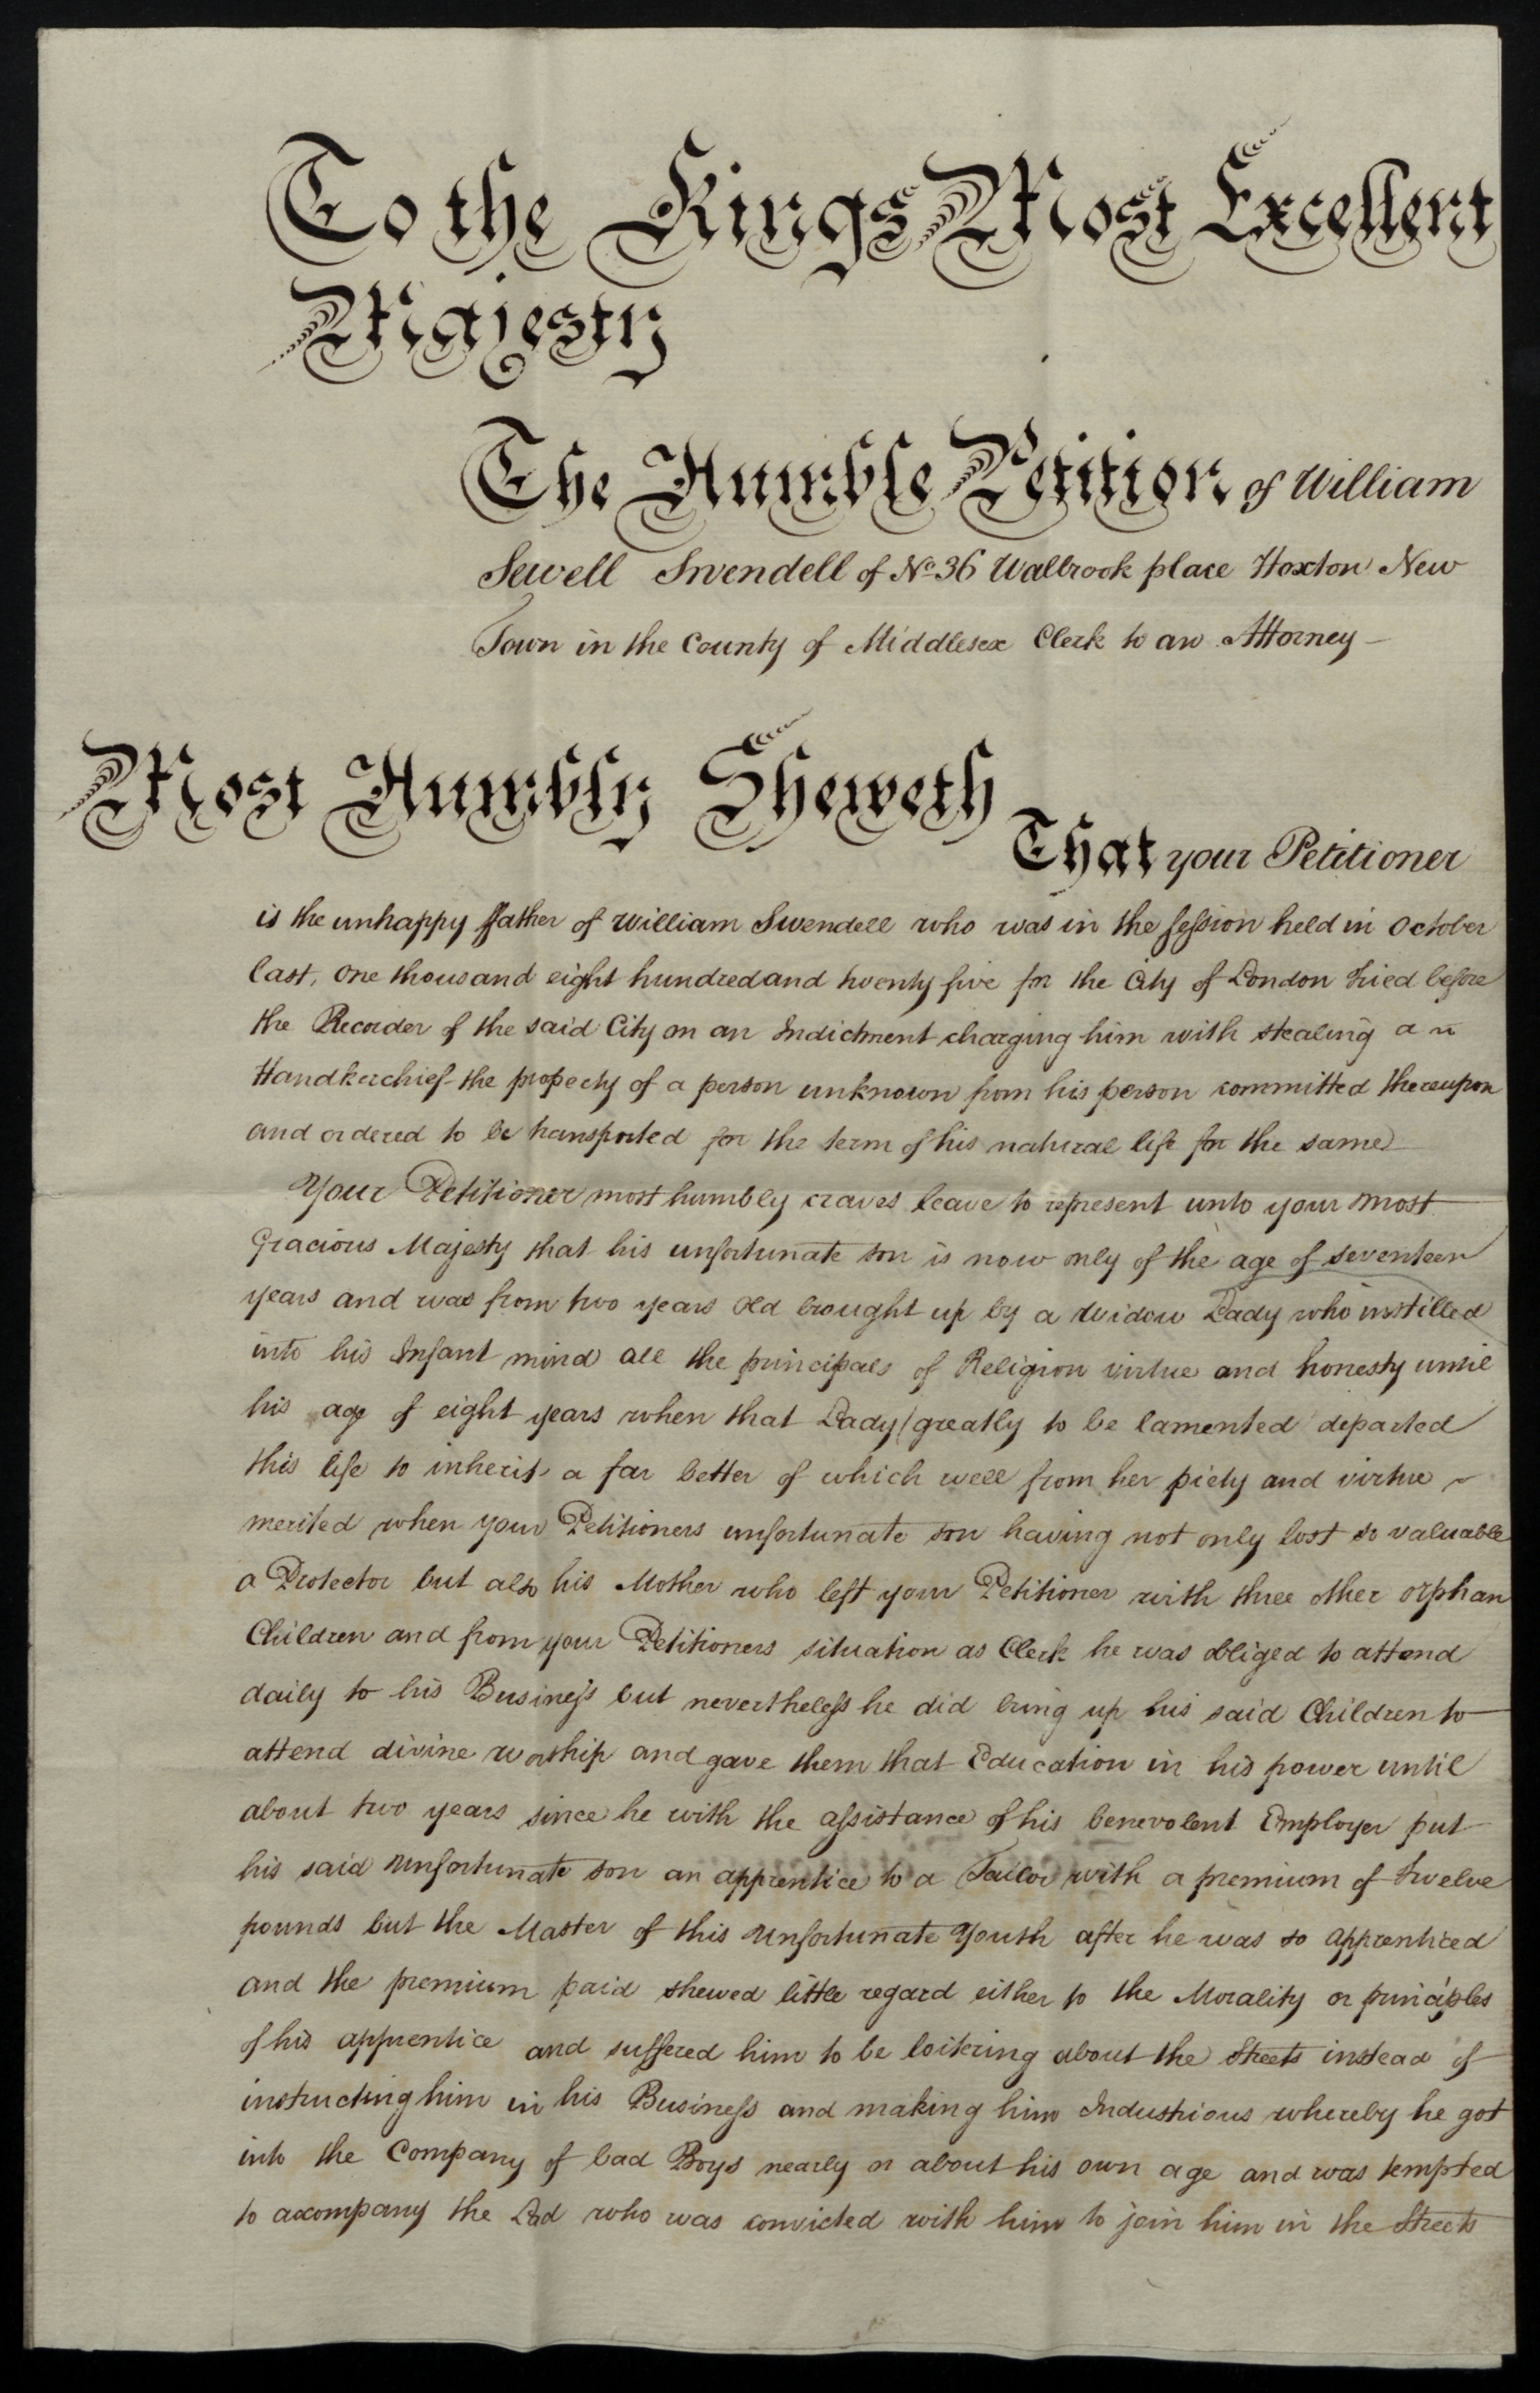 To the Kings Most Excellent
Majesty
The Humble Petition of William
Sewell Swendell of No. 36 Walbrook place Hoxton New
Town in the County of Middlesex Clerk to an Attorney –
Most Humbly Sheweth
That your Petitioner
is the unhappy ffather of William Swendell who was in the session held in October
last, one thousand eight hundred and twenty five for the City of London tried before
the Recorder of the said City on an Indictment charging him with stealing a
Handkerchief the property of a person unknown from his person committed thereupon
and ordered to be transported for the term of his natural life for the same
Your Petitioner most humbly craves leave to represent unto your most
Gracious Majesty that his unfortunate son is now only of the age of seventeen
years and was from two years old brought up by a Widow Lady who instilled
into his Infant mind all the principals of Religion virtue and honesty until
his age of eight years when that Lady (greatly to be lamented departed
this life to inherit a far better of which well from her piety and virtue
merited when your Petitioners unfortunate son having not only lost so valuable
a Protector but also his Mother who left your Petitioner with three other orphan
Children and from your Petitioners situation as Clerk he was obliged to attend
daily to his Business but nevertheless he did bring up his said Children to
attend divine worship and gave them that Education in his power until
about two years since he with the assistance of his benevolent Employer put
his said unfortunate son an apprentice to a Tailor with a premium of twelve
pounds but the Master of this unfortunate Youth after he was so apprenticed
and the premium paid shewed little regard either to the Morality or principles
of his apprentice and suffered him to be loitering about the Streets instead of
instructing him in his Business and making him Industrious whereby he got
into the Company of bad Boys nearly or about his own age and was tempted
to accompany the Lad who was convicted with him to join him in the Streets